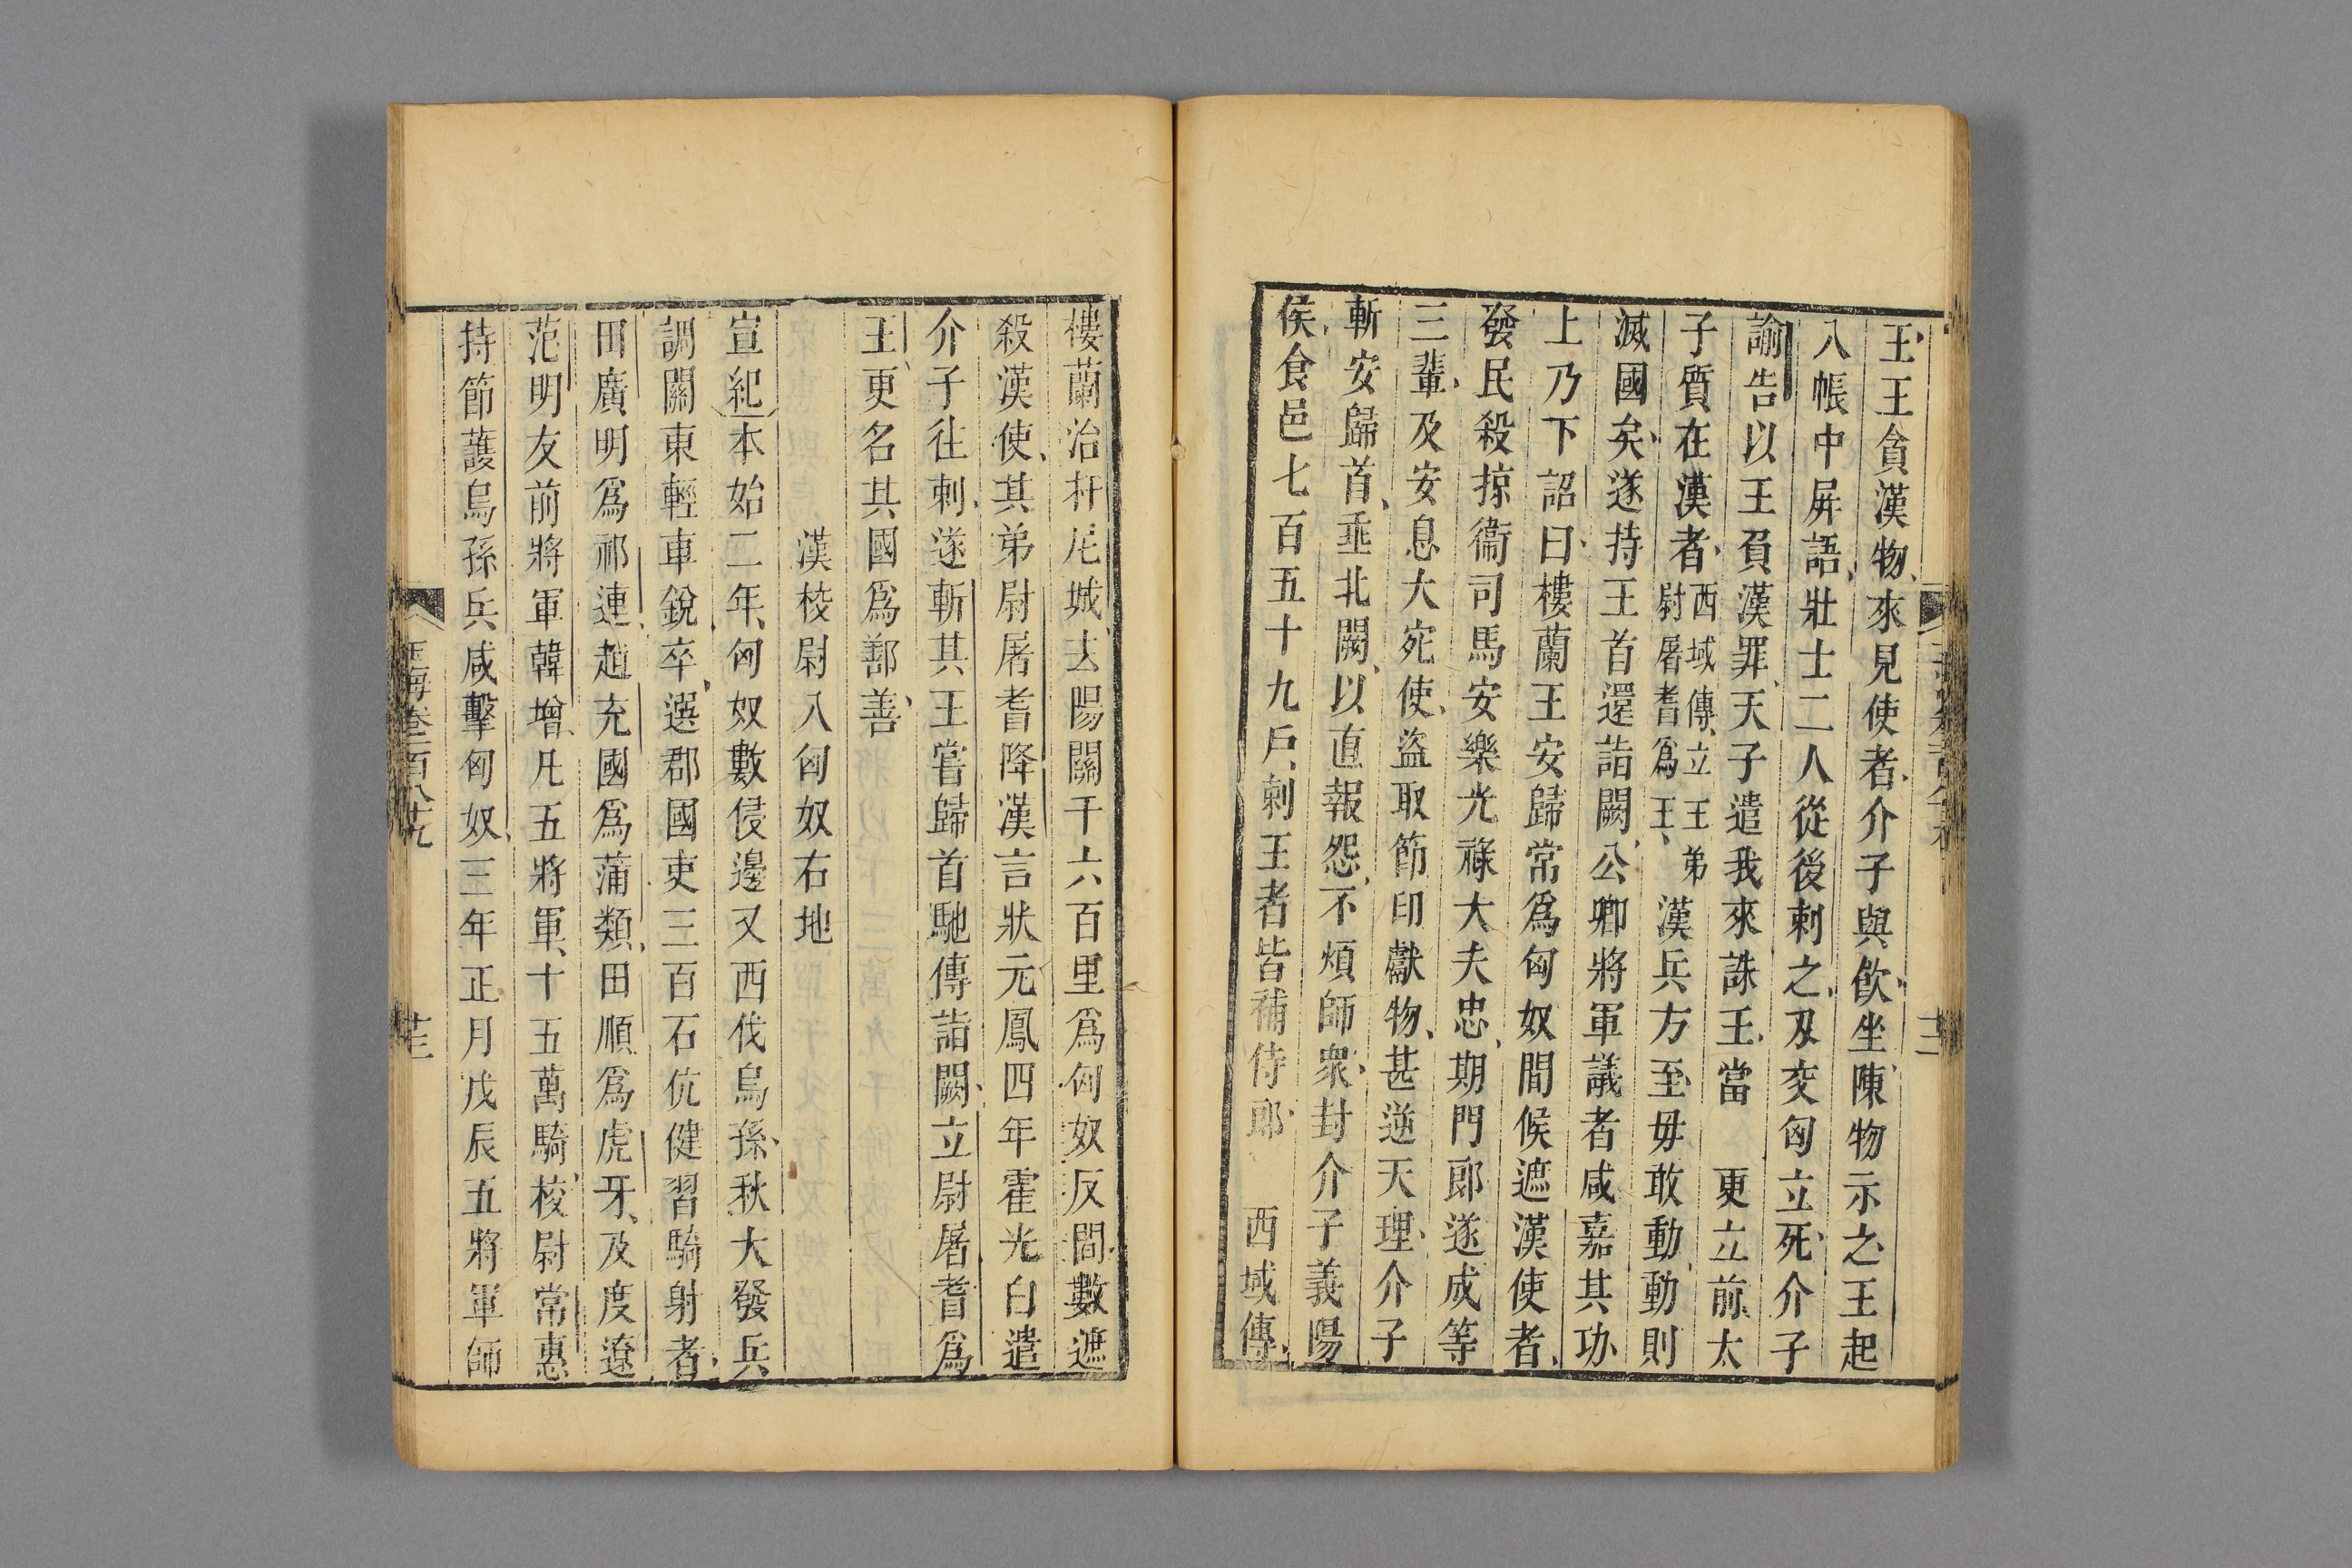 王王貪漢物來見使者介子與飲坐陳物示之王起
入帳中屏語壯士二人從後刺之刃交匈立死介子
諭告以王負漢罪天子遣我來誅王當 更立前太
子質在漢者西域傳立王弟尉屠耆爲王漢兵方至毋敢動動則
滅國矣遂持王首還詣闕公卿將軍議者咸嘉其功
上乃下詔曰樓蘭王安歸常爲匈奴間候遮漢使者
發民殺掠衞司馬安樂光祿大夫忠期門郎遂成等
三輩及安息大宛使盜取節印獻物甚逆天理介子
斬安歸首垂北闕以直報怨不煩師衆封介子義陽
侯食邑七百五十九戶刺王者皆補侍郎 西域傳
樓蘭治扜尼城去陽關千六百里爲匈奴反間數遮
殺漢使其弟尉屠耆降漢言狀元鳳四年霍光白遣
介子往刺遂斬其王嘗歸首馳傳詣闕立尉屠耆爲
王更名其國爲鄯善
漢校尉入匈奴右地
宣紀本始二年匈奴數侵邊又西伐烏孫秋大發兵
調關東輕車銳卒選郡國吏三百石伉健習騎射者
田廣明爲祁連趙充國爲蒲類田順爲虎牙及度遼
范明友前將軍韓增凡五將軍十五萬騎校尉常惠
持節護烏孫兵咸擊匈奴三年正月戊辰五將軍師
玉海卷一百八十九
廿三